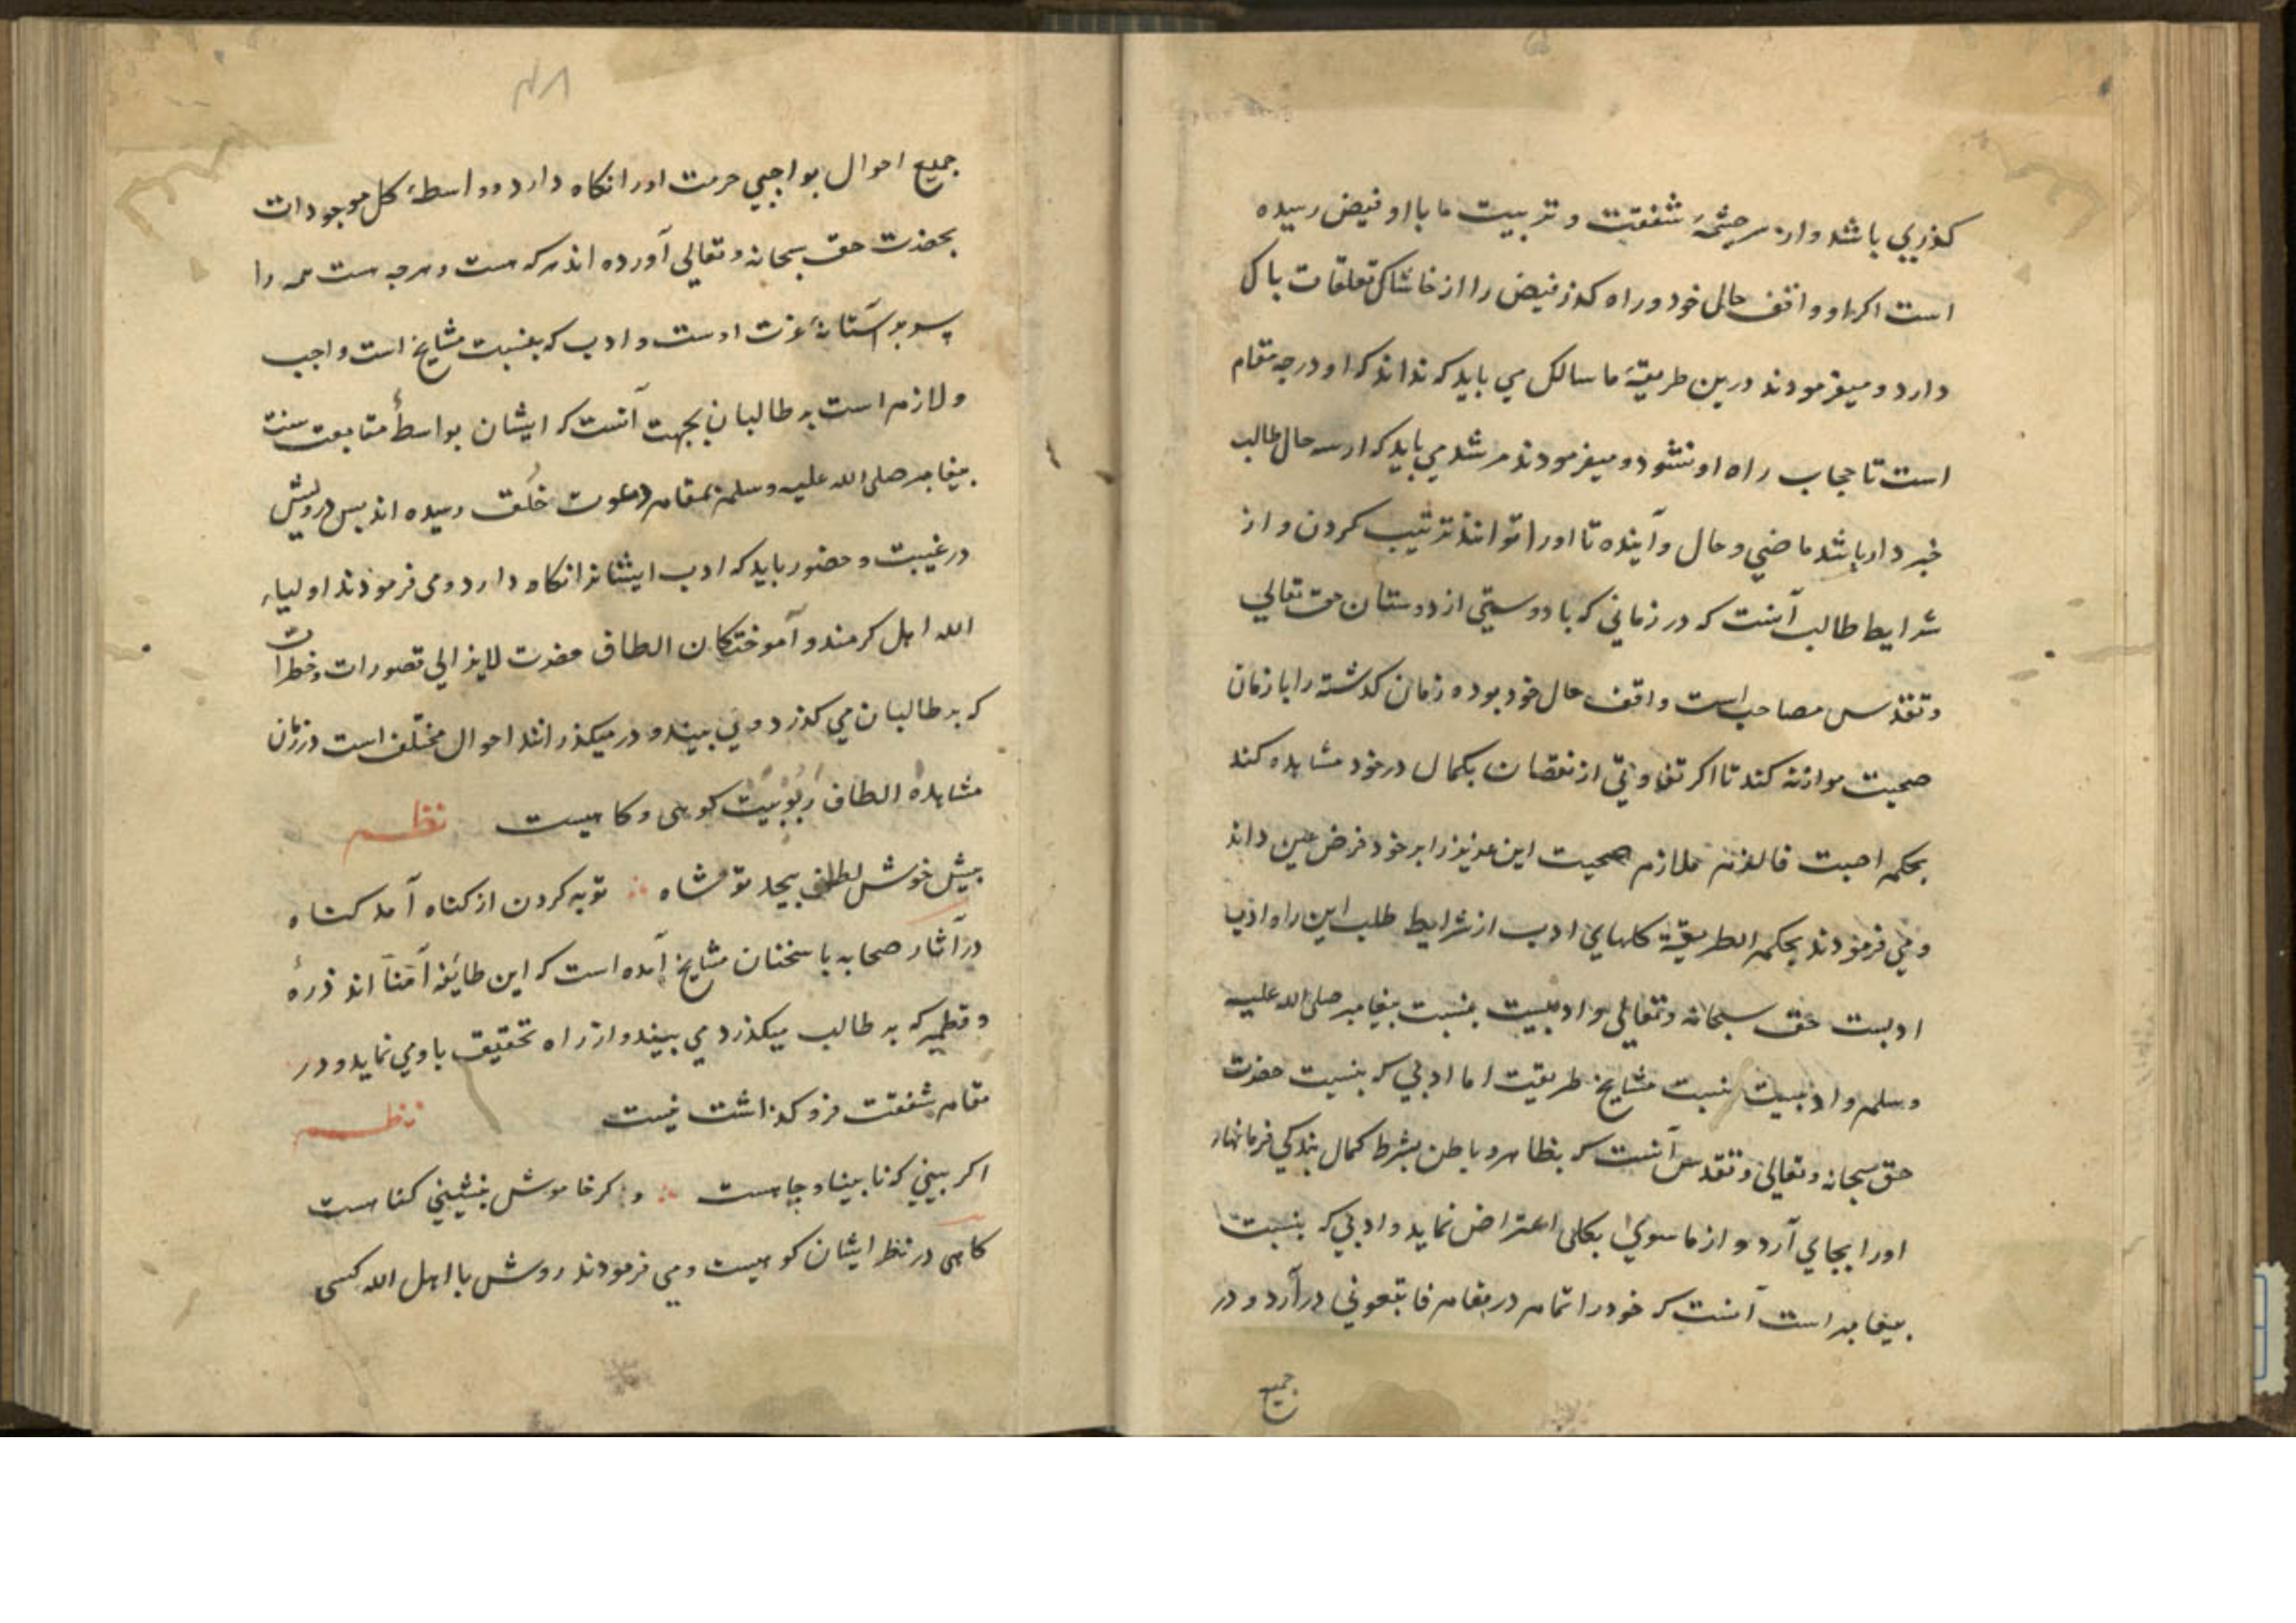 كذری باشد و از سرچشمهٔ شفقت و تربیت ما با او فیض رسیده
است اکر او واقف حال خود و راه كذر فیض را از خاشاک تعلقات پاک
دارد و میفرمودند درین طریقهٔ ما سالک می باید که نداند که او در چه مقام
است تا حجاب راه او نشود و میفرمودند مرشد می باید که از سه حال طالب
خبر دار باشد ماضی و حال و آینده تا او را تواند تربیت کردن و از
شرایط طالب آنست که در زمانی که با دوستی از دوستان حق تعالی
و تقدس مصاحب است واقف حال خود بوده زمان کذشته را با زمان
صحبت موازنه کند تا اکر تفاوتی از نقصان بکمال در خود مشاهده کند
بحکم اصبت فالزم ملازم صحبت این عزیز را بر خود فرض عین داند
و می فرمودند بحکم الطریقة کلهای ادب از شرایط طلب این راه ادب
ادبست حق سبحانه و تعالی و ادبیست بنسبت پیغامبر صلی الله علیه
وسلم و ادبیست بنسبت مشایخ طریقت اما ادبی که بنسبت حضرت
حق سبحانه و تعالی و تقدس آنست که بظاهر و باطن بشرط کمال بندکی فرمانهاء
او را بجای آرد و از ماسوی بکلی اعتراض نماید و ادبی که بنسبت
پیغامبر است آنست که خود را تمام در مقام فاتبعونی درآرد و در
جمیع
۴۸
جمیع احوال بواجبی حرمت او را نکاه دارد و واسطهٔ کل موجودات
بحضرت حق سبحانه و تعالی آورده اند هر که هست و هر چه هست همه را
سر بر آستانهٔ عزت اوست و ادب که بنسبت مشایخ است واجب
و لازم است بر طالبان بجهت آنست که ایشان بواسطهٔ متابعت سنت
پیغامبر صلی الله علیه وسلم بمقام دعوت خلق رسیده اند پس درویش
در غیبت و حضور باید که ادب ایشانرا نکاه دارد و می فرمودند اولیاء
الله اهل کرمند و آموختکان الطاف حضرت لایزالی تصورات و خطرات
که بر طالبان می کذرد می بیند و در میکذرانند احوال مختلف است در زمان
مشاهدهٔ الطاف ربوبیت کوهی و کاهیست نظم
پیش خوش لطف بیحد تو شاه ∴ توبه کردن از کناه آمد کناه
در آثار صحابه یا سخنان مشایخ آمده است که این طایفه اُمنا اند ذرهٔ
و قطمیر که بر طالب میکذرد می بیند و از راه تحقیق باو می نماید و در
مقام شفقت فرو کذاشت نیست نظم
اکر بینی که نابینا و چاهست ∴ و کر خاموش بنشینی کناهست
کاهی در نظر ایشان کوهیست و می فرمودند روش با اهل الله کسی